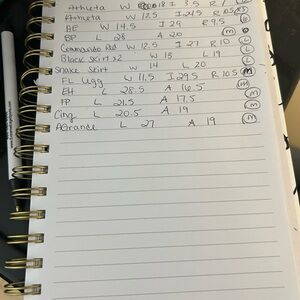 Athleta W 18 I 3.5 R 7
Athleta W 12.5 I 24.5 R 10.5
AE W 14.5 I 29 R 9.5
BP L 28 A 20 M
Commando Red W 12.5 I 27 R 10 L
Black skirt x2 W 13 L 19 L
Snake Skirt W 14 L 20
FL Legg W 11.5 I 29.5 R 10.5 M
EH L 28.5 A 16.5 M
FP L 21.5 A 17.5
Cing L 20.5 A 19 M
AGrande L 27 A 19 M